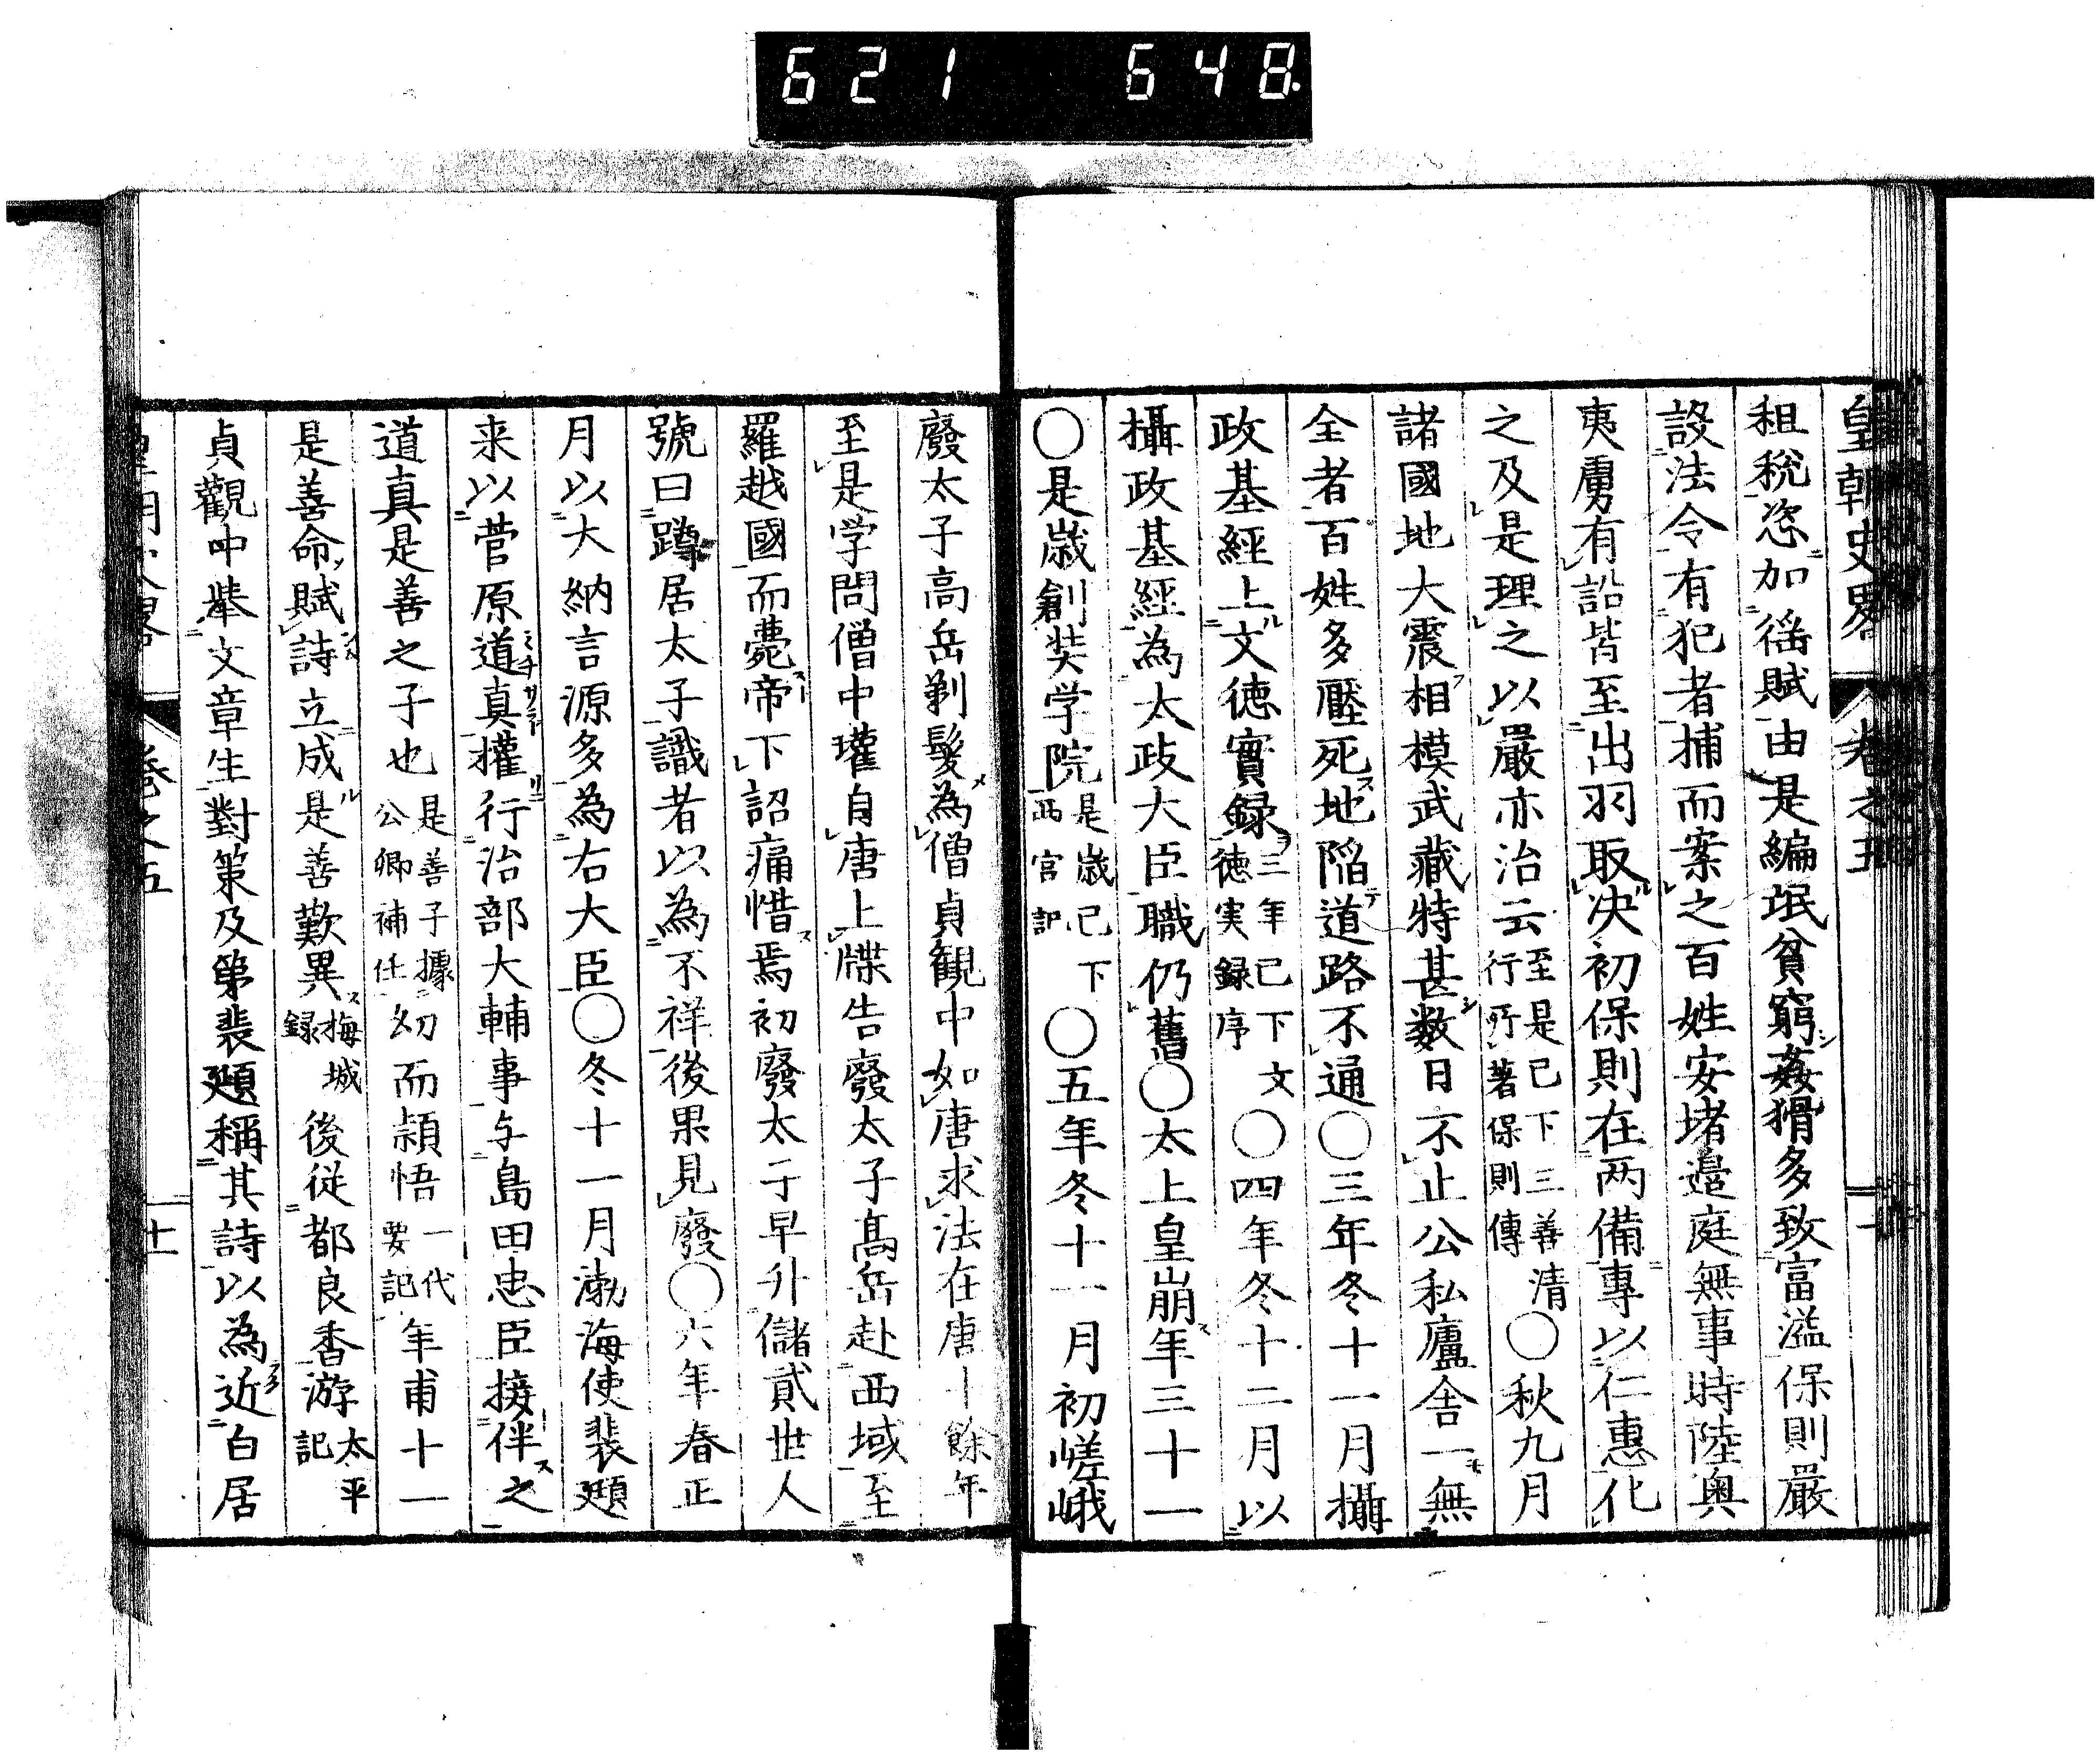 621 648
皇朝史畧 卷之五
租稅恣加徭賦由是編氓貧窮姦猾多致富溢保則嚴
設法令有犯者捕而案之百姓安堵邉庭無事時陸奥
夷虜有訟皆至出羽取决初保則在两備專以仁惠化
之及是理之以嚴亦治云至是已下三善清行所著保則傳〇秋九月
諸國地大震相模武藏特甚数日不止公私廬舎一無
全者百姓多壓死地陷道路不通〇三年冬十一月攝
政基經上文徳實録三年已下文徳実録序〇四年冬十二月以
攝政基經為太政大臣職仍舊〇太上皇崩年三十一
〇是歳創奘学院是歳已下西宮記〇五年冬十一月初嵯峨
廢太子高岳剃髮為僧貞観中如唐求法在唐十餘年
至是学問僧中瓘自唐上牒告廢太子髙岳赴西域至
羅越國而薨帝下詔痛惜焉初廢太子早升儲貳世人
號曰蹲居太子識者以為不祥後果見廢〇六年春正
月以大納言源多為右大臣〇冬十一月渤海使裴頲
来以菅原道真權行治部大輔事与島田忠臣接伴之
道真是善之子也是善子據公卿補任幼而頴悟一代要記年甫十一
是善命賦詩立成是善歎異梅城録後従都良香游太平記
貞觀中舉文章生對策及第裴頲稱其詩以為近白居
卷之五 十一